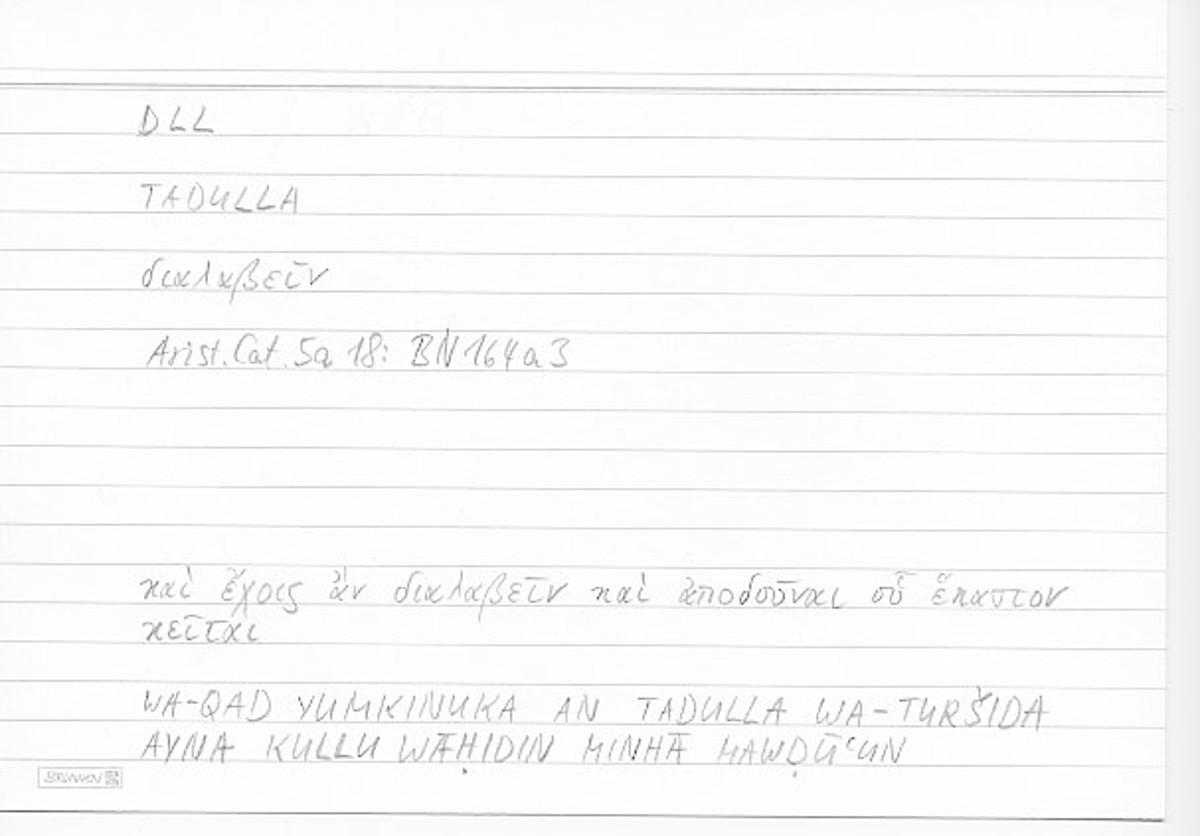 DLL
TADULLA
διαλαβεῖν
Arist. Cat. 5a 18: BN 164a3
καὶ ἔχοις ἂν διαλαβεῖν καὶ ἀποδοῦναι οὗ ἕκαστον
κεῖται
WA-QAD YUMKINUKA AN TADULLA WA-TURŠIDA
AYNA KULLU WĀḤIDIN MINHĀ MAWḌŪʿUN
BRUNNEN